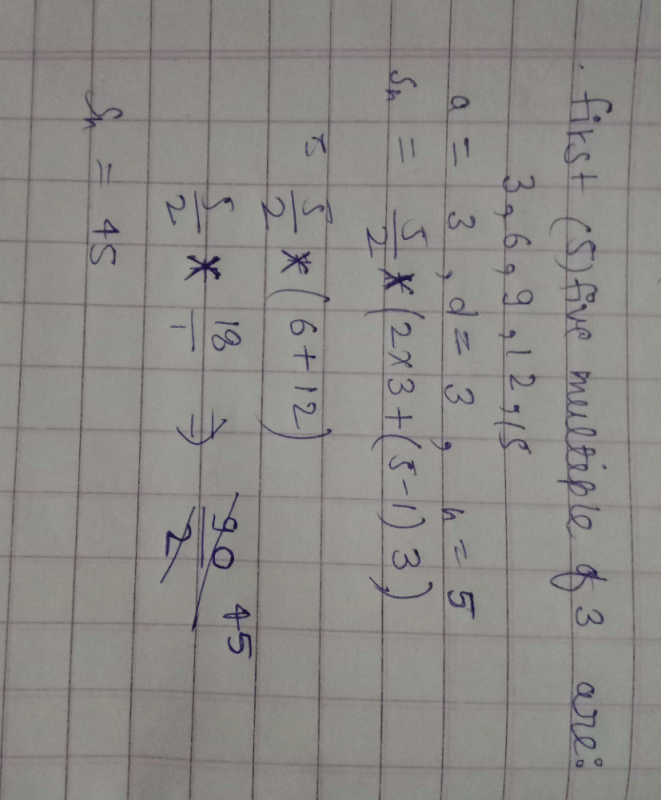 first (5) five multiple of 3 are:
3, 6, 9, 12, 15
a = 3, d = 3, n = 5
Sn = 5/2 * (2×3+(5-1) 3)
= 5/2 * (6+12)
5/2 * 18/1 ⇒ 90/2 45
Sn = 45